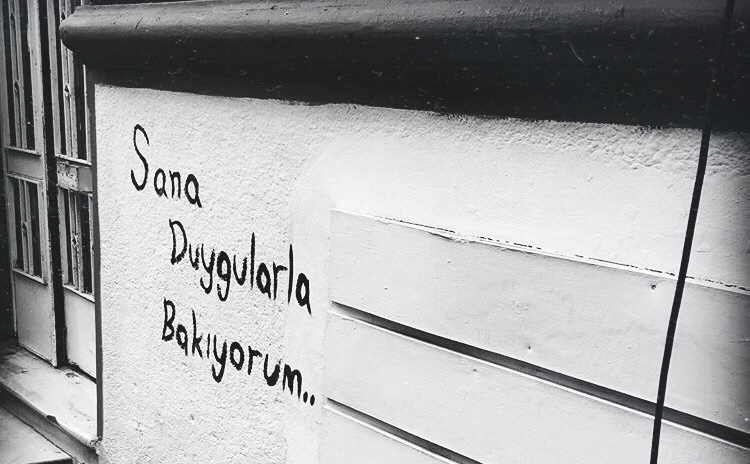 Sana
Duygularla
Bakıyorum..